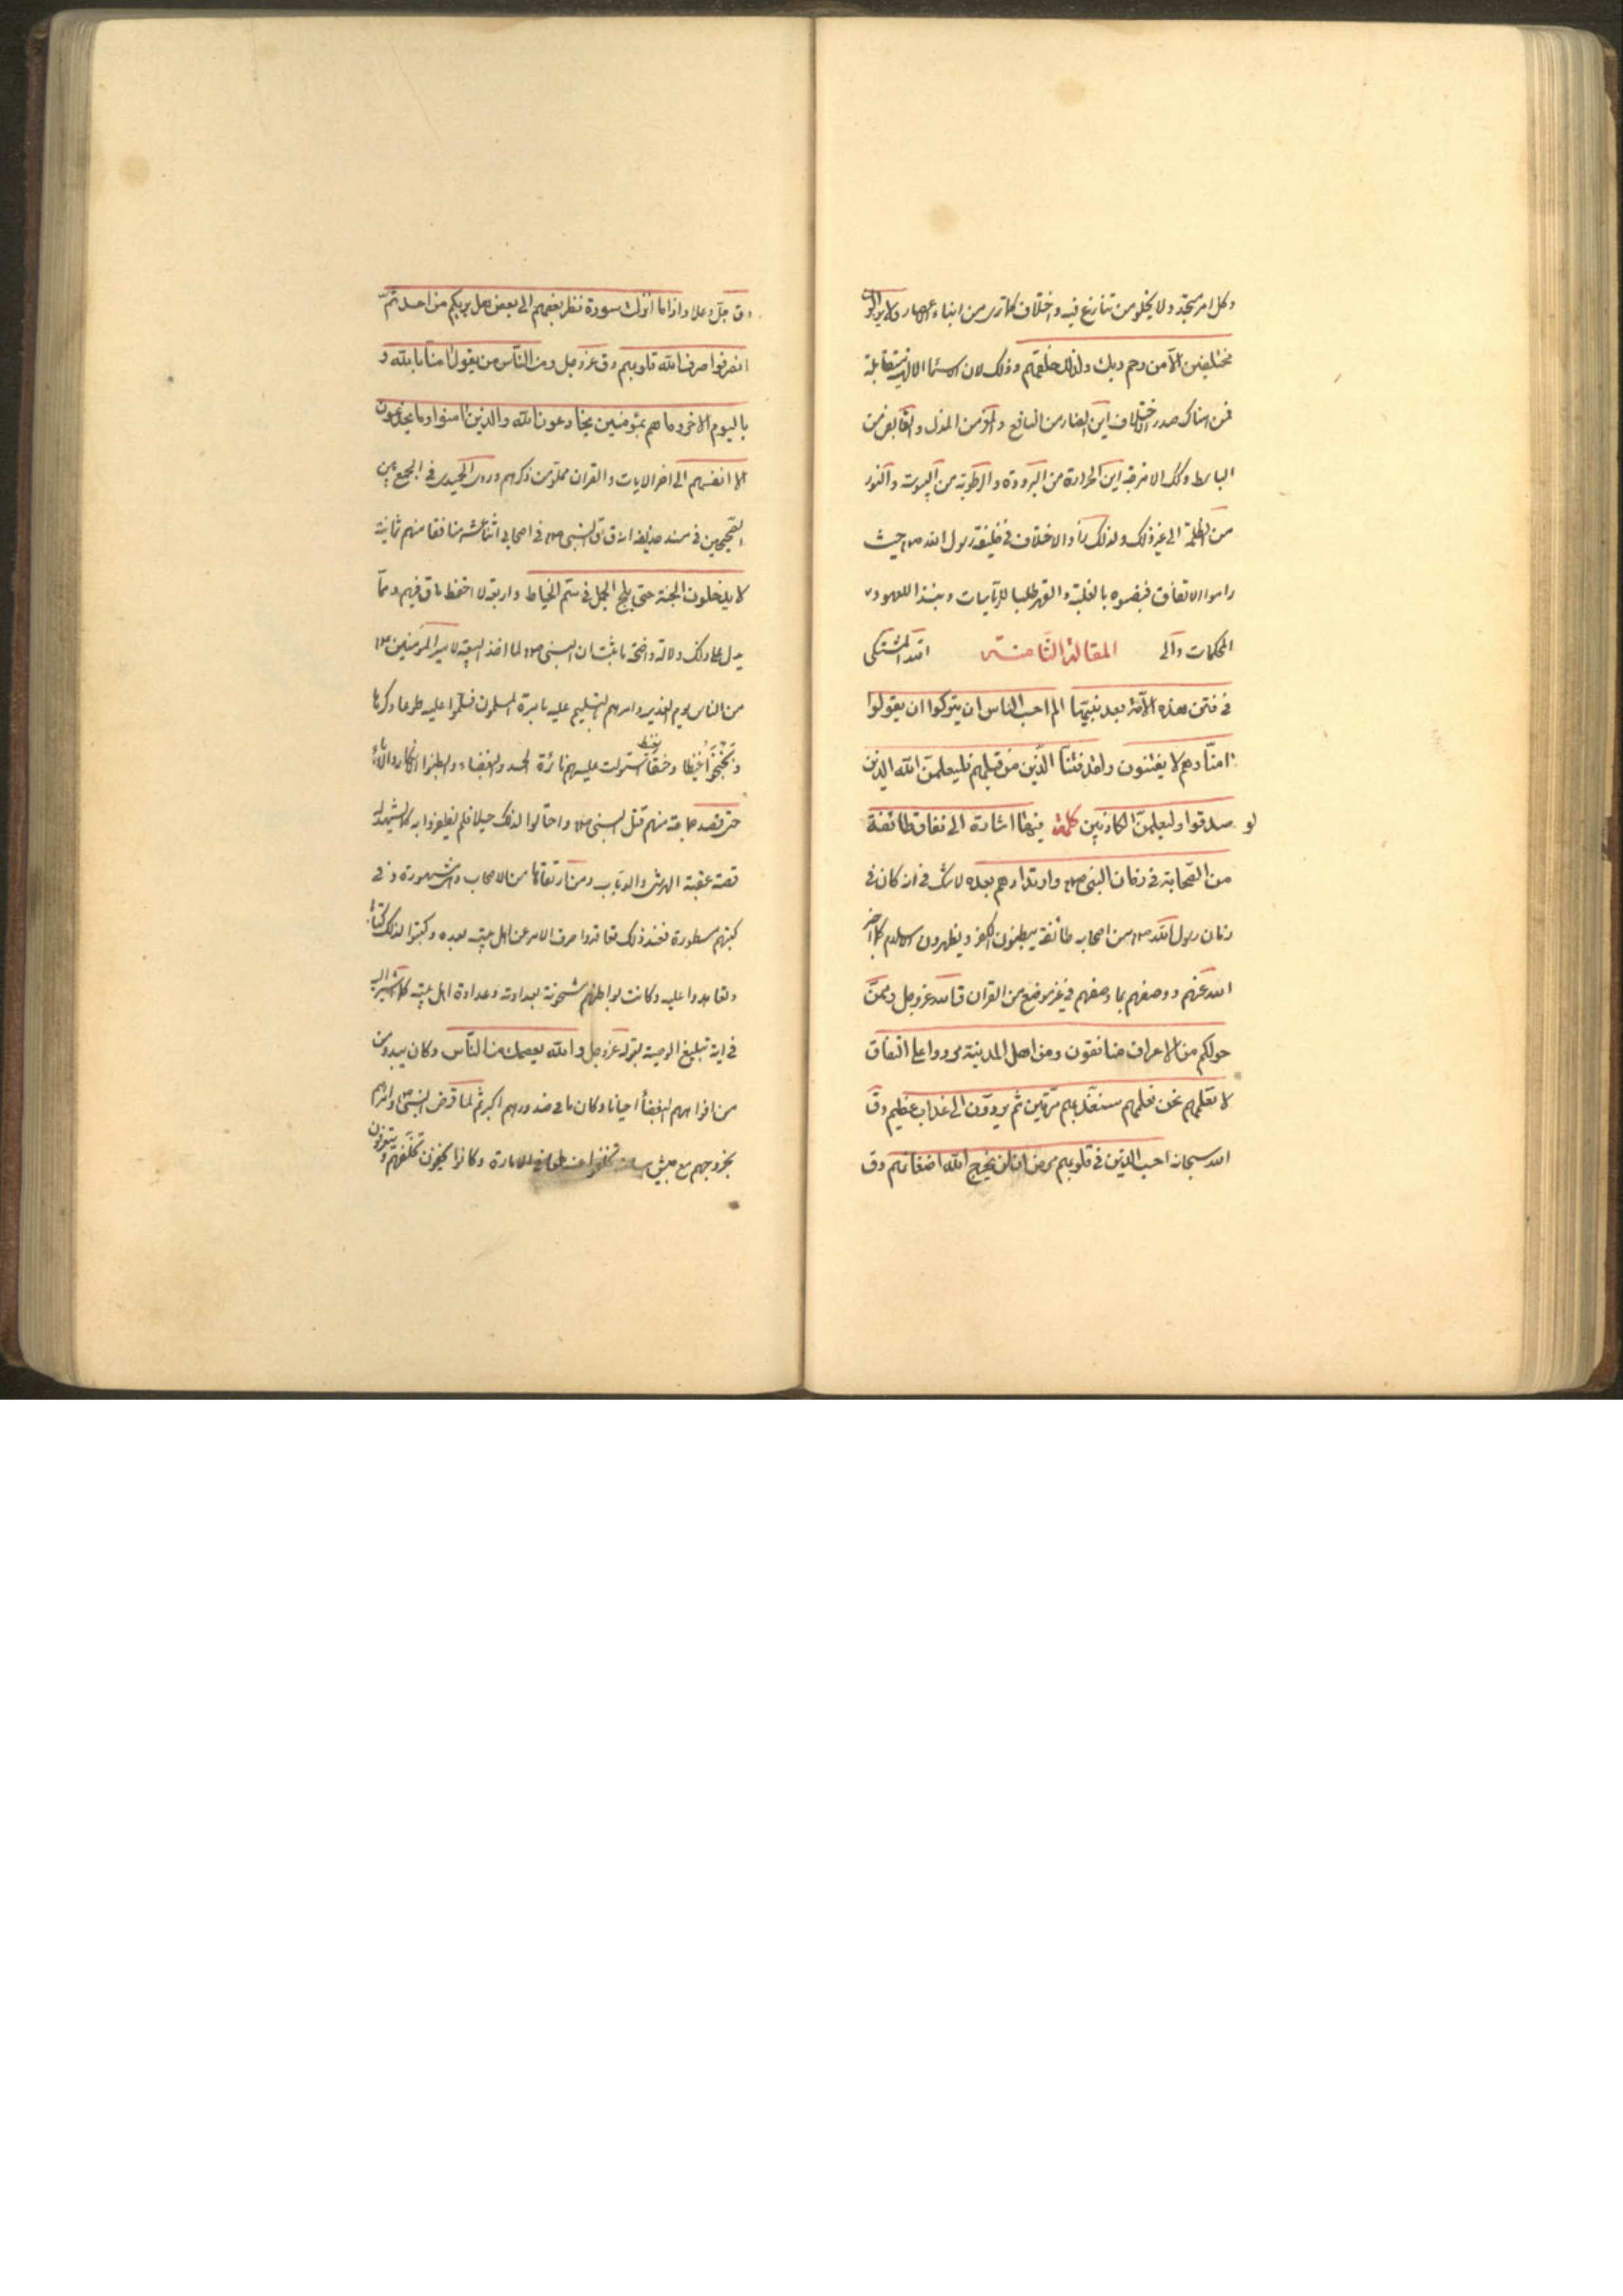 وكل امر متجدد ولا يخلو من تنازع فيه واختلاف كما ترى من ابناء الاعصار ولا يزالون
مختلفين الا من رحم ربك ولذلك خلقهم وذلك لان الاسماء الالهية متقابلة
فمن هناك صدر الاختلاف اين الضار من النافع والمعز من المذل والقابض من
الباسط وكك الامزجة اين الحرارة من البرودة والرطوبة من اليبوسة والنور
من الظلمة الى غير ذلك ولذلك الاختلاف في خليفة رسول الله ص حيث
راموا الاتفاق بالغلبة والقهر طلبا للرياسات ونبذا للعهود و
المحكمات والى المقالة الثامنة الله المشتكى
في فتن هذه الامة بعد نبيها الم احسب الناس ان يتركوا ان يقولوا
امنا وهم لا يفتنون ولقد فتنا الذين من قبلهم فليعلمن الله الذين
صدقوا وليعلمن الكاذبين كلمة فيها اشارة الى نفاق طائفة
من الصحابة في زمان النبي ص وارتدادهم بعده لا شك في انه كان في
زمان رسول الله ص من اصحابه طائفة يبطنون الكفر ويظهرون الاسلام كما اخبر
الله عنهم ووصفهم بما وصفهم في غير موضع من القران قال الله عز وجل وممن
حولكم من الاعراب منافقون ومن اهل المدينة مردوا على النفاق
لا تعلمهم نحن نعلمهم سنعذبهم مرتين ثم يردون الى عذاب عظيم وق
الله سبحانه احسب الذين في قلوبهم مرض ان لن يخرج الله اضغانهم وق
وق جل وعلا واذا ما انزلت سورة نظر بعضهم الى بعض هل يريكم من احد ثم
انصرفوا صرف الله قلوبهم وق عز وجل ومن الناس من يقول امنا بالله و
باليوم الاخر وما هم بمؤمنين يخادعون الله والذين امنوا وما يخدعون
الا انفسهم الى اخر الايات والقران مملو من ذكرهم وروى الحميدي في الجمع بين
الصحيحين في مسند حذيفة انه ق ق النبي ص في اصحابي اثنا عشر منافقا منهم ثمانية
لا يدخلون الجنة حتى يلج الجمل في سم الخياط واربعة لا احفظ ما ق فيهم ومما
يدل على ذلك دلالة واضحة ما ثبت ان النبي ص لما اخذ البيعة لامير المؤمنين ع
من الناس يوم الغدير وامرهم بالتسليم عليه بامرة المسلمون فسلموا عليه طوعا وكرها
غيظا وحنقا استولت عليهم نائرة الحسد والبغضاء وابطنوا الانكار والاباء
حتى قصد جماعة منهم قتل النبي ص واحتالوا لذلك حيلا فلم يظفروا به كما يشهد له
قصة عقبة الهرشى والدباب ومن ارتقاها من الاصحاب والمشهورة و في
كتبهم مسطورة فعند ذلك تعاقدوا صرف الامر عن اهل بيته بعده وكتبوا لذلك كتابا
وتعاهدوا عليه وكانت بواطنهم مشحونة بعداوته وعداوة اهل بيته كما اشير اليه
في اية تبليغ الوصية بقوله عز وجل والله يعصمك من الناس وكان يبدو من
من افواههم البغضاء احيانا وكان ما في صدورهم اكبر ثم لما مرض النبي ص وامرهم
بخروجهم مع جيش اسامة تخلفوا عنه طمعا في الامارة وكانوا يخفون تخلفهم